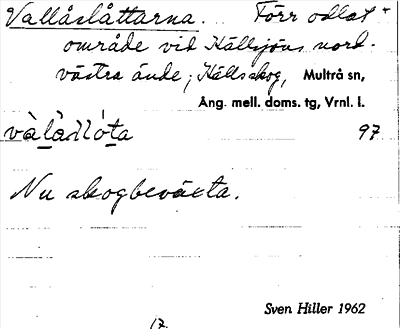 Vallåslåttarna. Förr odlat
område vid Källsjöns nord-
västra ände; Källskog, Multrå sn,
Ång. mell. doms. tg, Vrnl. l.
97
Nu skogbeväxta.
Sven Hiller 1962